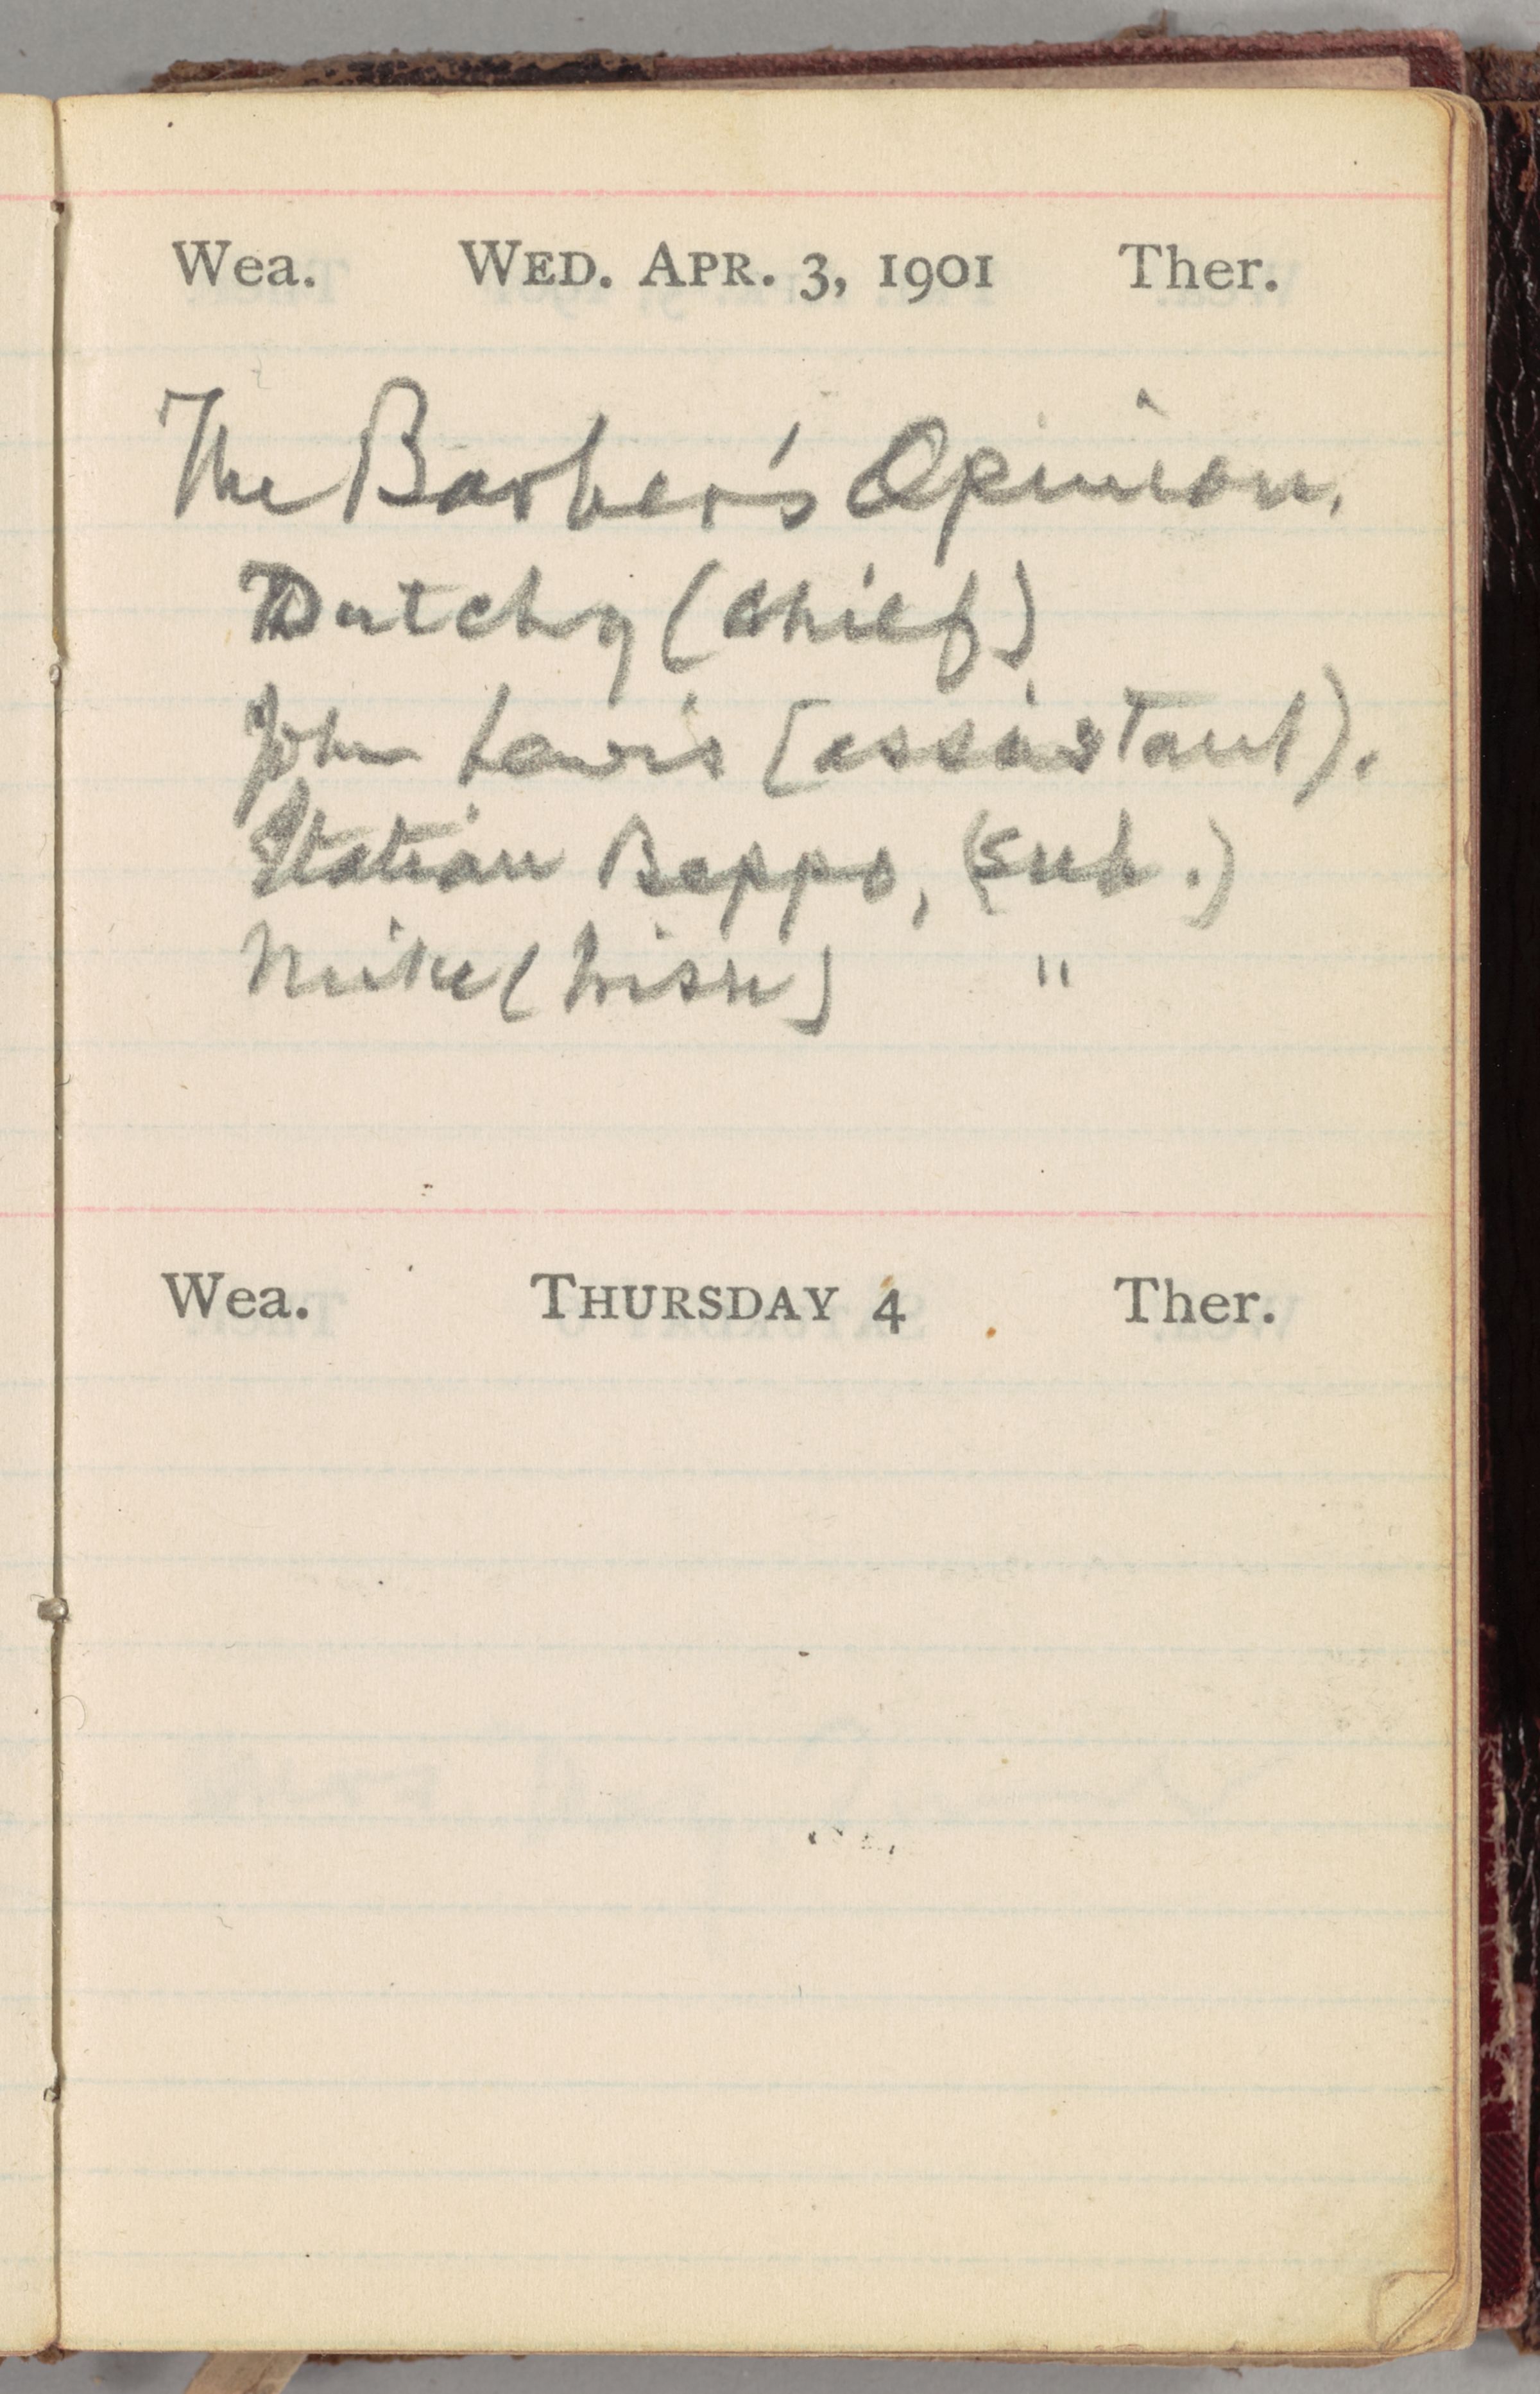 Wea. WED. APR. 3, 1901 Ther.
The Barber's Opinion.
Dutchy (chief)
John Lewis (assistant).
Italian Beppo, (sub.)
Mike (Irish) "
Wea. THURSDAY 4 Ther.